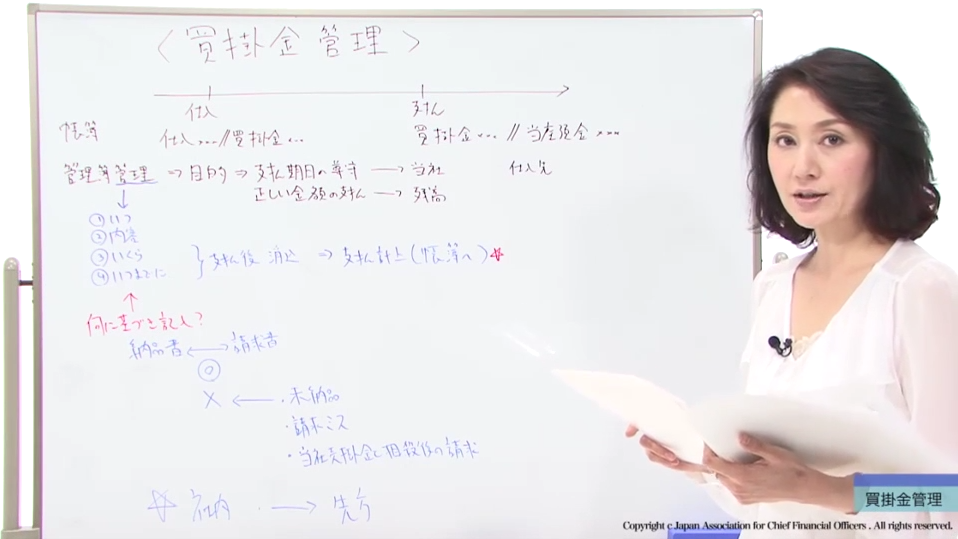 〈買掛金管理〉
仕入 支払
帳簿 仕入…//買掛金… 買掛金…//当座預金…
管理簿管理 ⇒ 目的 ⇒ 支払期日の尊守 → 当社 仕入先
正しい金額の支払 → 残高
①いつ
②内容
③いくら
④いつまでに
}支払後 消込 ⇒ 支払計上(帳簿へ)
何に基づき記入?
納品書 ↔ 請求書
◎
× ← ・未納品
・請求ミス
・当社売掛金と相殺後の請求
☆ 社内 → 先方
買掛金管理
Copyright c Japan Association for Chief Financial Officers . All rights reserved.